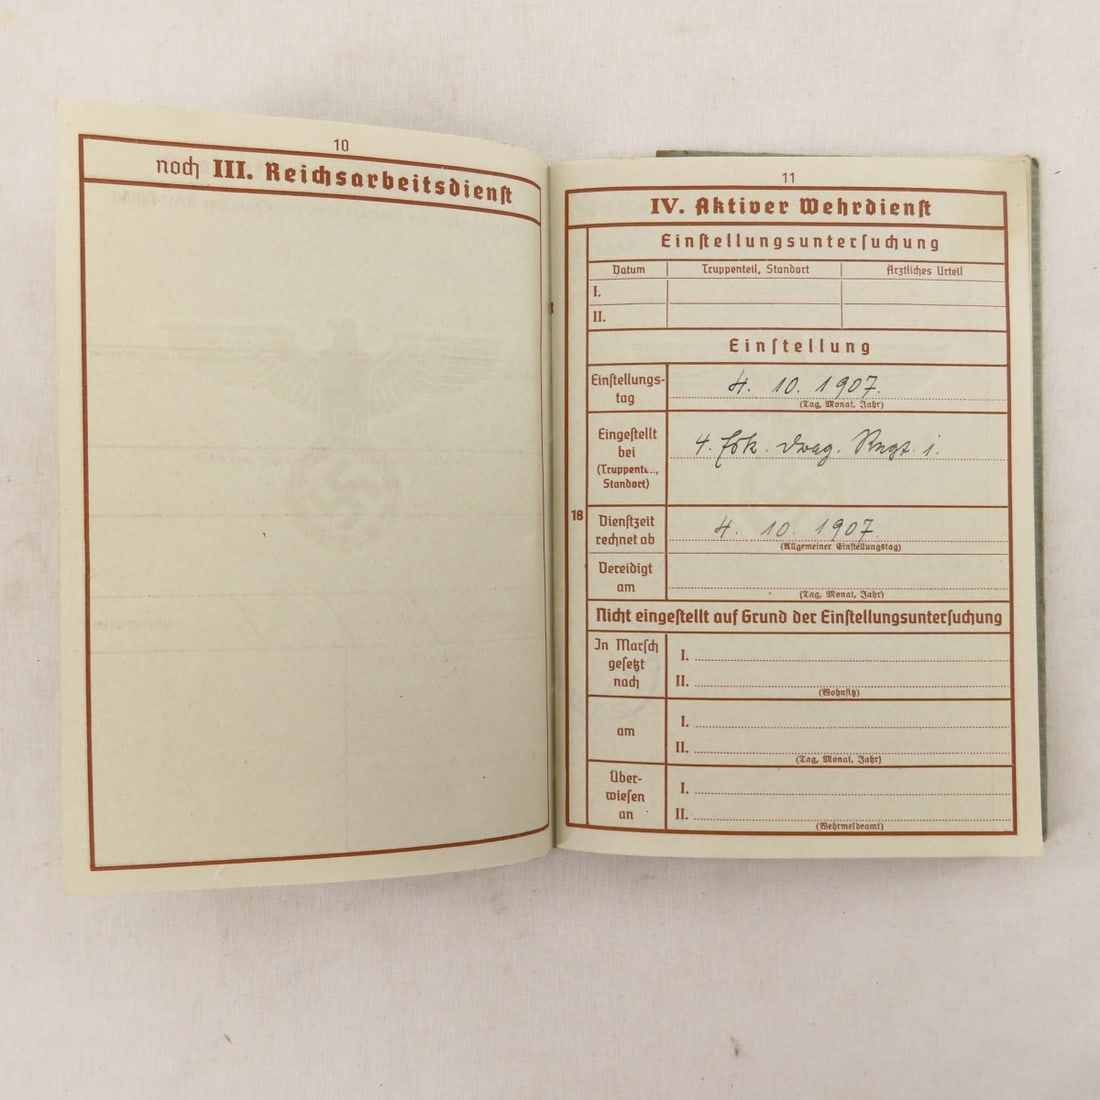 10
noch III. Reichsarbeitsdienst
11
IV. Aktiver Wehrdienst
Einstellungsuntersuchung
Datum Truppenteil, Standort Ärztliches Urteil
I.
II.
Einstellung
Einstellungs-
tag
4. 10. 1907.
(Tag, Monat, Jahr)
Eingestellt
bei
(Truppent..,
Standort)
4. Esk. Drag. Regt. i.
18
Dienstzeit
rechnet ab
4. 10. 1907
(Allgemeiner Einstellungstag)
Vereidigt
am
(Tag, Monat, Jahr)
Nicht eingestellt auf Grund der Einstellungsuntersuchung
In Marsch
gesetzt
nach
I.
II.
(Wohnsitz)
am
I.
II.
(Tag, Monat, Jahr)
Über-
wiesen
an
I.
II.
(Wehrmeldeamt)